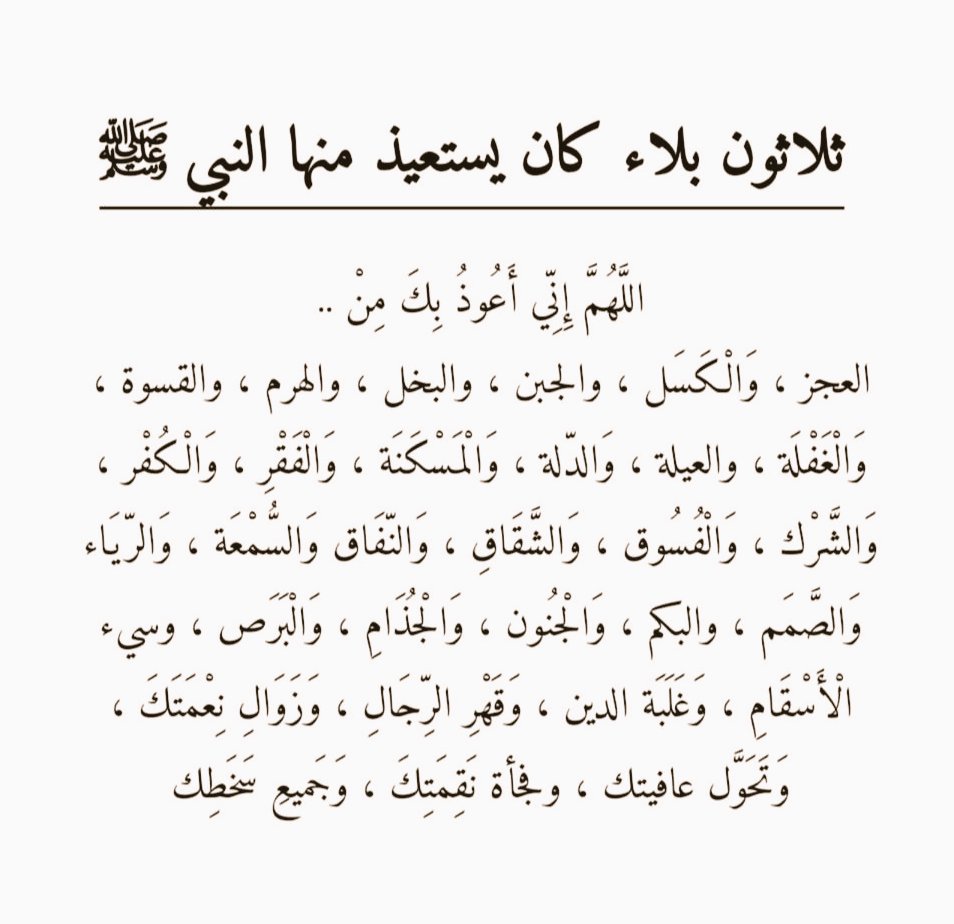 ثلاثون بلاء كان يستعيذ منها النبي ﷺ
اللَّهُمَّ إِنِّي أَعُوذُ بِكَ مِنْ ..
العجز ، وَالْكَسَل ، والجبن ، والبخل ، والهرم ، والقسوة ،
وَالْغَفْلَة ، والعيلة ، وَالدّلة ، وَالْمَسْكَنَة ، وَالْفَقْرِ ، وَالْكُفْر ،
وَالشَّرْك ، وَالْفُسُوق ، وَالشَّقَاقِ ، وَالنّفَاق وَالسُّمْعَة ، وَالرّيَاء
وَالصَّمَم ، والبكم ، وَالْجنُون ، وَالْجُذَامِ ، وَالْبَرَص ، وسيء
الْأَسْقَامِ ، وَغَلَبَة الدين ، وَقَهْرِ الرِّجَالِ ، وَزَوَالِ نِعْمَتَكَ ،
وَتَحَوَّل عافيتك ، وفجأة نَقِمَتِكَ ، وَجَميعِ سَخَطِك